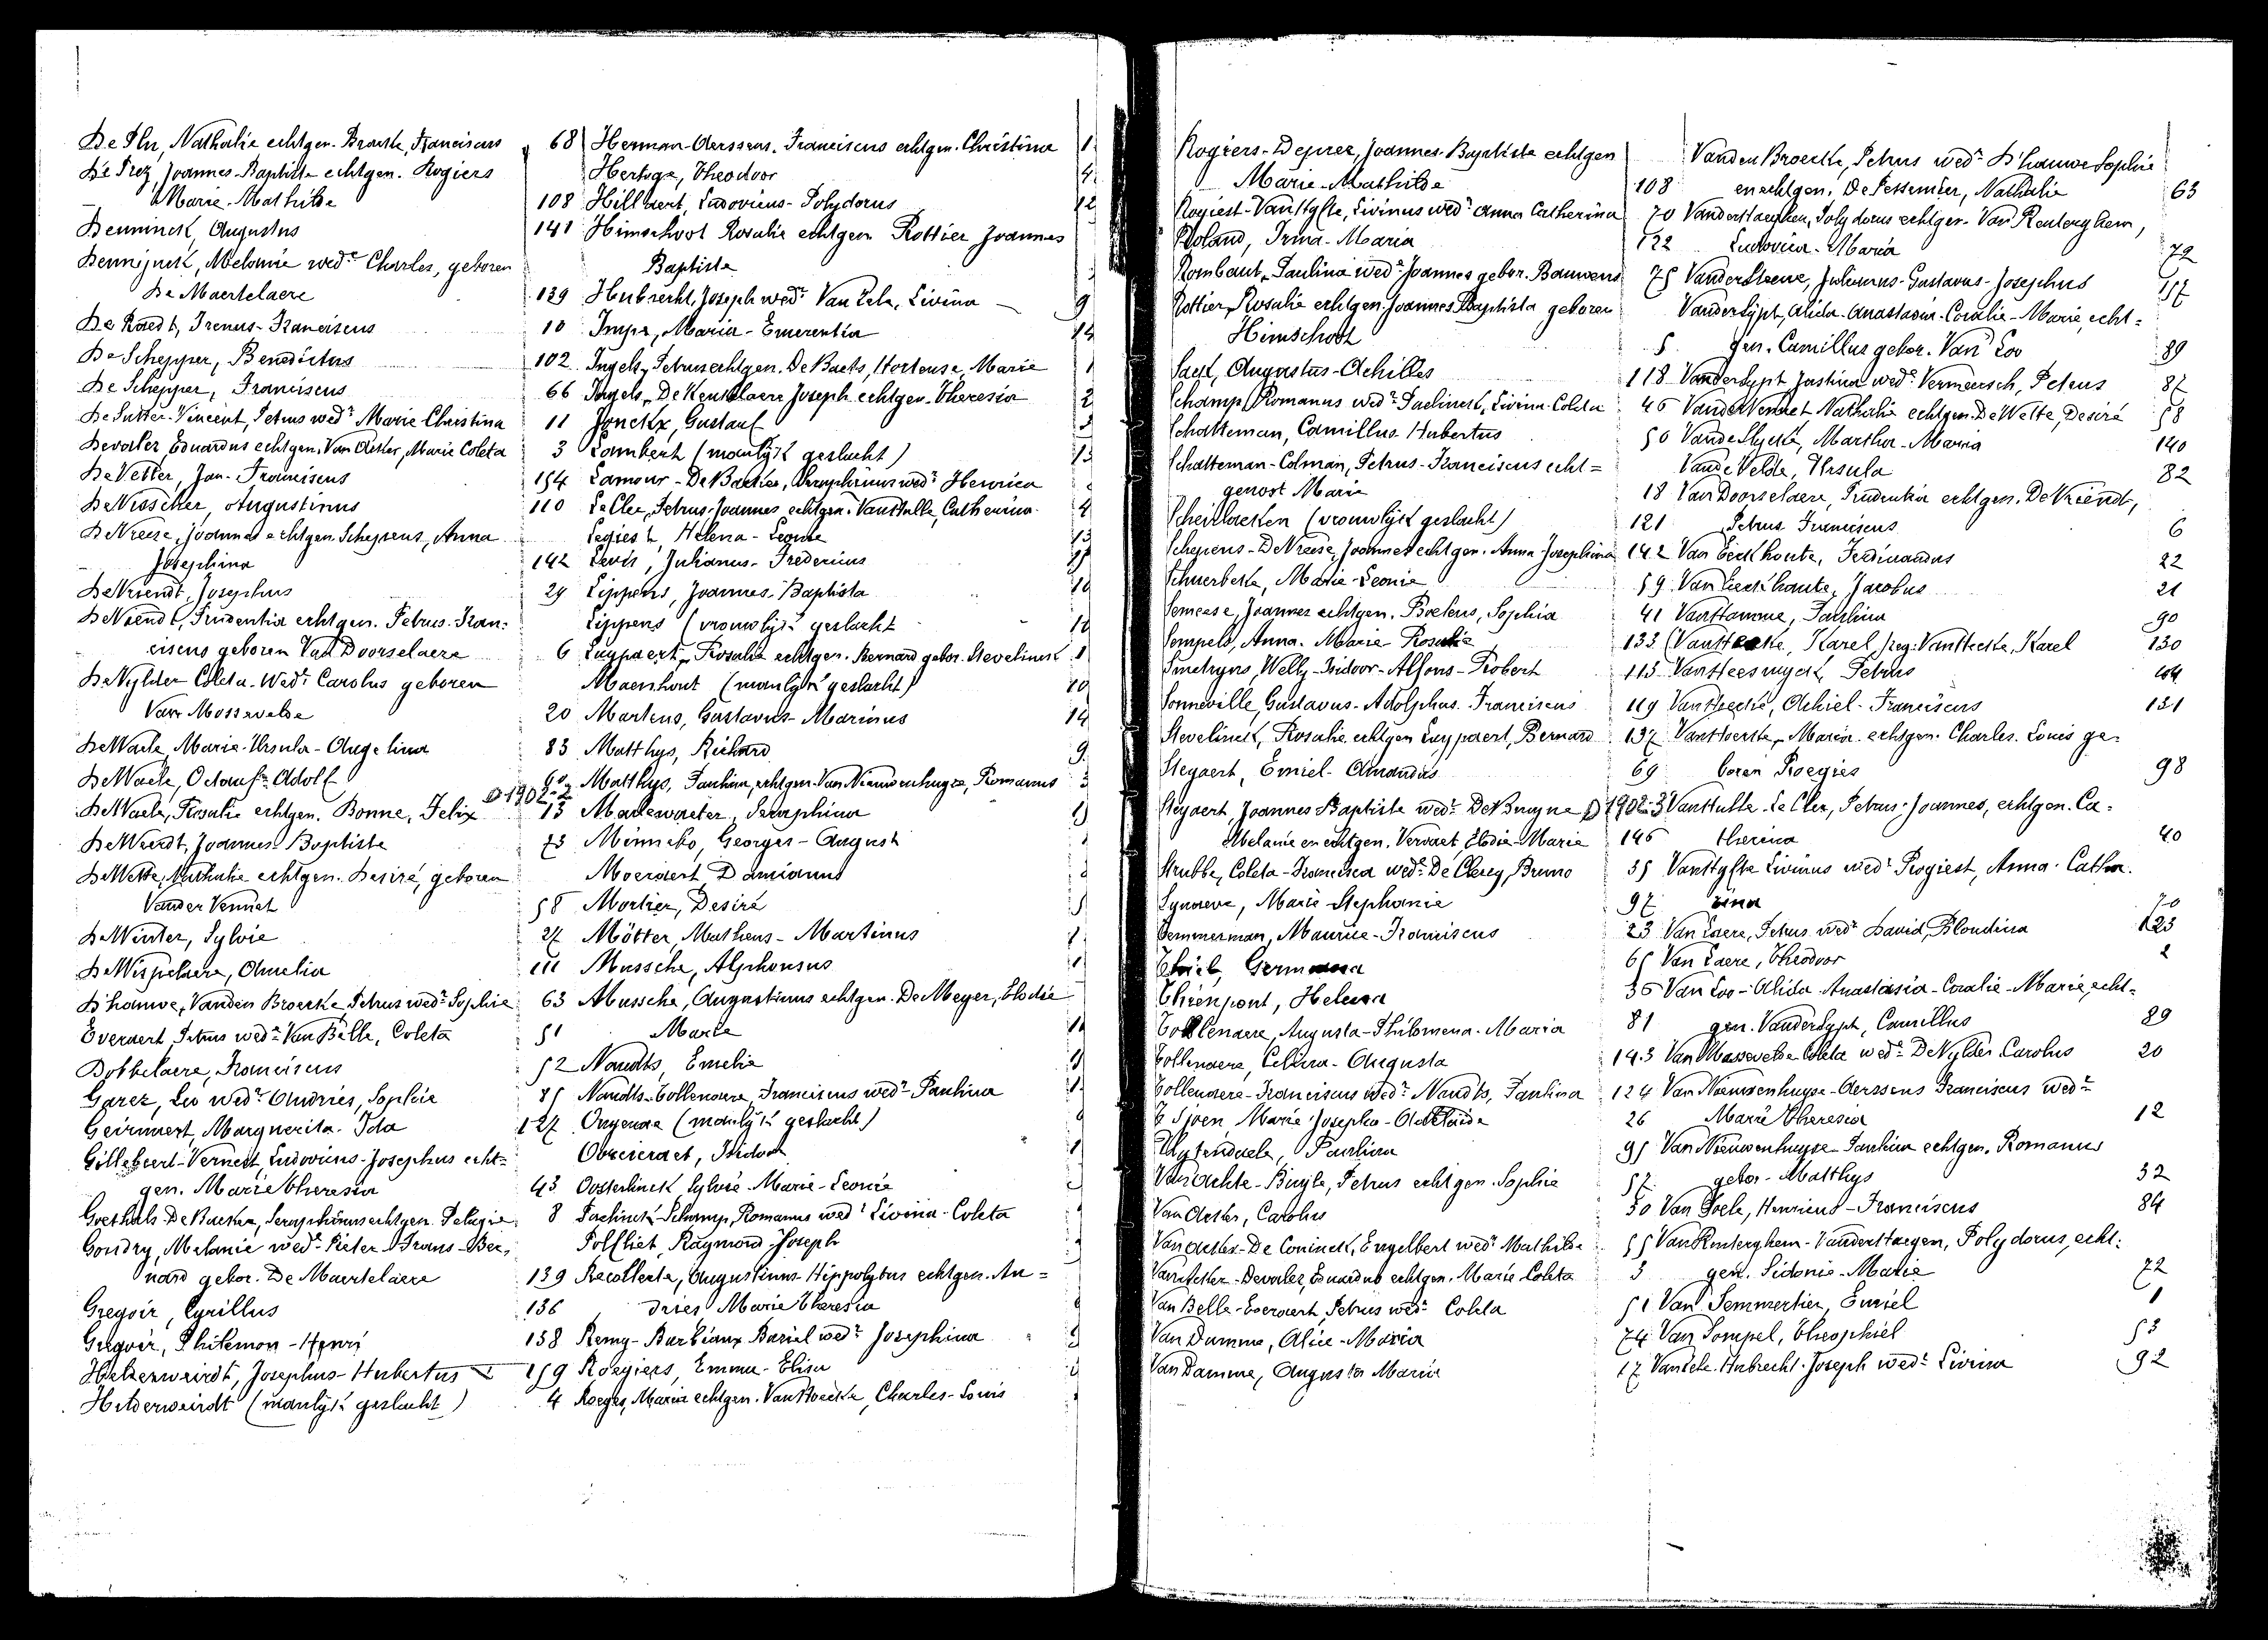 De Plu, Nathalie echtgen. Braeke, Franciscus 68
De Prez, Joannes-Baptiste echtgen. Rogiers
Marie-Mathilde 108
Deuninck, Augustus 141
Dennijnck, Melanie wedᵉ Charles, geboren
De Maertelaere 139
De Raedt, Irenus-Franciscus 10
De Schepper, Benedictus 102
De Schepper, Franciscus 66
De Sutter-Vincent, Petrus wedʳ Marie Christina 11
Devaler, Eduardus echtgen. Van Acker, Marie Coleta 3
De Vetter, Jan-Franciscus 154
De Visscher, Augustinus 110
De Vreese, Joannes echtgen. Schepens, Anna
Josephina 142
De Vriendt, Josephus 29
De Vriendt, Prudentia echtgen. Petrus-Fran-
ciscus geboren Van Doorselaere 6
De Vylder Coleta-Wedᵉ Carolus geboren
Van Mossevelde 20
De Waele, Marie-Ursula-Angelina 83
De Waele, Octaaf-Adolf 60
De Waele, Rosalie echtgen. Bonne, Felix Ⓓ1902-2 13
De Weerdt, Joannes-Baptiste 73
De Wette, Nathalie echtgen. Desiré, geboren
Vander Vennet 58
De Winter, Sylvie 27
De Wispelaere, Amelia 111
D'hauwe, Vanden Broecke, Petrus wedʳ Sophie 63
Everaert, Petrus wedʳ Van Belle, Coleta 51
Dobbelaere, Franciscus 52
Garez, Leo wedʳ Andries, Sophie 85
Geirnaert, Marguerita-Ida 127
Gillebeert-Vernest, Ludovicus-Josephus echt-
gen. Marie Theresia 43
Goethals-De Backer, Seraphinus echtgen. Pelagie 8
Goudry, Melanie wedᵉ Pieter-Frans-Ber-
nard gebor. De Maertelaere 139
Gregoir, Cyrillus 136
Gregoir, Philemon-Henri 138
Helderweirdt, Josephus-Hubertus 159
Helderweirdt (manlijk geslacht) 4
Herman-Aerssens, Franciscus echtgen. Christina
Hertoge, Theodoor
Hillaert, Ludovicus-Polydorus
Himschoot Rosalie echtgen. Rottier Joannes
Baptiste
Hubrecht, Joseph wedʳ Van Eele, Livina
Impe, Maria-Emerentia
Ingels, Petrus echtgen. De Baets, Hortense, Marie
Ingels, De Keukelaere Joseph echtgen. Theresia
Jonckx, Gustaaf
Lambert (manlijk geslacht)
Lamour-De Backer, Seraphinus wedʳ Henrica
Le Clee, Petrus-Joannes echtgen. Van Hulle, Catherina
Legiest, Helena-Leonie
Levis, Julianus-Fredericus
Lippens, Joannes-Baptista
Lippens (vrouwlijk geslacht
Luypaert, Rosalie echtgen. Bernard gebor. Stevelinck
Maenhout (manlijk geslacht)
Martens, Gustavus-Marinus
Matthys, Richard
Matthys, Paulina, echtgen. Van Nieuwenhuyze, Romanus
Mallewaeter, Seraphina
Minneke, Georges-August
Moeraert Damianus
Mortier, Desiré
Mötter, Matheus-Martinus
Mussche, Alphonsus
Mussche, Augustinus echtgen. De Meyer, Elodie
Marie
Naudts, Emelie
Naudts-Tollenaere, Franciscus wedʳ Paulina
Ongenae (manlijk geslacht)
Isidoor
Oosterlinck Sylvie-Marie-Leonie
Paelinck-Schamp, Romanus wedʳ Livina-Coleta
Polfliet, Raymond-Joseph
Recollecte, Augustinus-Hippolytus echtgen. An-
dries Marie Theresia
Remy-Barbiaux Daniel wedʳ Josephina
Roegiers, Emma-Elisa
Roegies, Maria echtgen. Van Hoecke, Charles-Louis
Rogiers-Deprez, Joannes-Baptiste echtgen
Marie-Mathilde 108
Rogiest-Van Hyfte, Livinus wedʳ Anna Catherina 70
Roland, Irma-Maria 122
Rombaut, Paulina wedᵉ Joannes gebor. Bauwens 75
Rottier, Rosalie echtgen. Joannes Baptista geboren
Himschoot 5
Saek, Augustus-Achilles 118
Schamp, Romanus wedʳ Paelinck, Livina-Coleta 46
Schatteman, Camillus-Hubertus 50
Schatteman-Colman, Petrus-Franciscus echt-
genoot Marie 18
Scheirlacken (vrouwlijk geslacht) 121
Schepens-De Vreese, Joannes echtgen. Anna Josephina 142
Schuerbeke, Marie-Leonie 59
Semeese, Joannes echtgen. Boelens, Sophia 41
Sempels, Anna-Marie-Rosalie 133
Smetryns, Welly-Isidoor-Alfons-Robert 115
Sonneville, Gustavus-Adolphus-Franciscus 119
Stevelinck, Rosalie echtgen Luypaert, Bernard 137
Steyaert, Emiel-Amandus 69
Steyaert, Joannes-Baptiste wedʳ De Bruyne Ⓓ1902-3
Melanie en echtgen. Vervaet, Elodie-Marie 146
Strubbe, Coleta-Francisca wedᵉ De Clercq, Bruno 35
Synaeve, Marie Stephanie 97
Temmerman, Maurice-Franciscus 23
Thiel, Germana 65
Thienpont, Helena 36
Tollenaere, Augusta-Philomena-Maria 81
Tollenaere, Celina-Augusta 143
Tollenaere-Franciscus wedʳ Naudts, Paulina 124
T'Sjoen, Marie-Josepha-Adelaide 26
Uytendaele, Paulina 95
Van Achte-Buyle, Petrus echtgen. Sophie 57
Van Acker, Carolus 30
Van Acker-De Coninck, Engelbert wedʳ Mathilde 55
Van Acker-Devaler, Eduardus echtgen. Marie Coleta 3
Van Belle-Everaert, Petrus wedʳ Coleta 51
Van Damme, Alice-Maria 74
Van Damme, Augusta Maria 17
Vanden Broecke, Petrus wedʳ D'hauwe Sophie
en echtgen. De Pessemier, Nathalie 63
Vanderstaeghen, Polydorus echtgen. Van Renterghem,
Ludovica-Maria 72
Vandersteene, Julianus-Gustavus-Josephus 117
Vandersypt, Alida-Anastasia-Coralie-Marie, echt-
gen. Camillus gebor. Van Loo 89
Vandersypt Justina wedᵉ Vermeersch, Petrus 87
Vander Vennet Nathalie echtgen. De Wette, Desiré 58
Vande Slycke, Martha-Maria 140
Vande Velde, Ursula 82
Van Doorselaere, Prudentia echtgen. De Vriendt,
Petrus Franciscus 6
Van Eeckhoute, Ferdinandus 22
Van Eeckhaute, Jacobus 21
Van Hamme, Paulina 90
(Van Hecke, Karel, Van Hecke, Karel 130
Van Heesvyck, Petrus 104
Van Hoecke, Achiel-Franciscus 131
Van Hoecke, Maria echtgen. Charles-Louis ge-
boren Roegies 98
Van Hulle-Le Clee, Petrus-Joannes, echtgen. Ca-
therina 40
Van Hyfte Livinus wedʳ Rogiest, Anna-Cathe-
rina 70
Van Laere, Petrus wedʳ David, Blondina 123
Van Laere, Theodoor 2
Van Loo-Alida-Anastasia-Coralie-Marie, echt-
gen. Vandersypt, Camillus 89
Van Mossevelde Coleta wedᵉ De Vylder Carolus 20
Van Nieuwenhuyse-Aerssens Franciscus wedʳ
Marie Theresia 12
Van Nieuwenhuyse-Paulina echtgen. Romanus
gebor. Matthys 32
Van Poele, Henricus-Franciscus 84
Van Renterghem-Vanderstaegen, Polydorus, echt-
gen. Sidonie-Marie 72
Van Semmertier, Emiel 1
Van Sompel, Theophiel 53
Van Eele-Hubrecht-Joseph wedʳ Livina 92